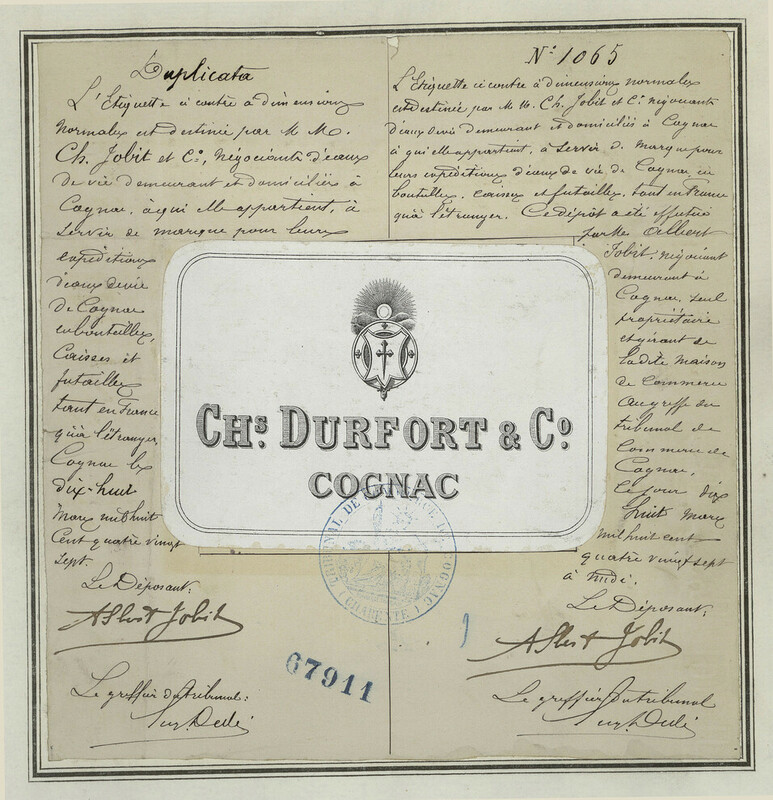 Duplicata
L'Etiquette ci contre à dimensions
normales est destinée par M. M.
Ch. Jobit et Co, Négociants d'eaux
de vie demeurant et domiciliés à
Cognac, à qui elle appartient, à
servir de marque pour leurs
expéditions
d'eaux de vie
de Cognac
en bouteilles,
Caisses et
futailles
tant en France
qu'à l'étranger,
Cognac le
dix-huit
Mars mil huit
Cent quatre vingt
sept.
Le Déposant:
Albert Jobit
Le greffier du tribunal:
N° 1065
L'Etiquette ci contre à dimensions normales
est destinée par M. M. Ch. Jobit et Co négociants
d'eaux de vie demeurant et domiciliés à Cognac
à qui elle appartient, à servir de marque pour
leurs expéditions d'eaux de vie de Cognac en
bouteilles, caisses et futailles, tant en France
qu'à l'étranger. Ce dépôt a été effectué
par Mr Albert
Jobit, négociant
demeurant à
Cognac, seul
propriétaire
et gérant de
la dite maison
de Commerce
au greffe du
tribunal de
Commerce de
Cognac,
le jour dix
huit Mars
mil huit cent
quatre vingt sept
à midi.
Le Déposant:
Albert Jobit
Le greffier du tribunal
CHs. DURFORT & Co
COGNAC
TRIBUNAL DE COMMERCE DE COGNAC
(CHARENTE)
67911